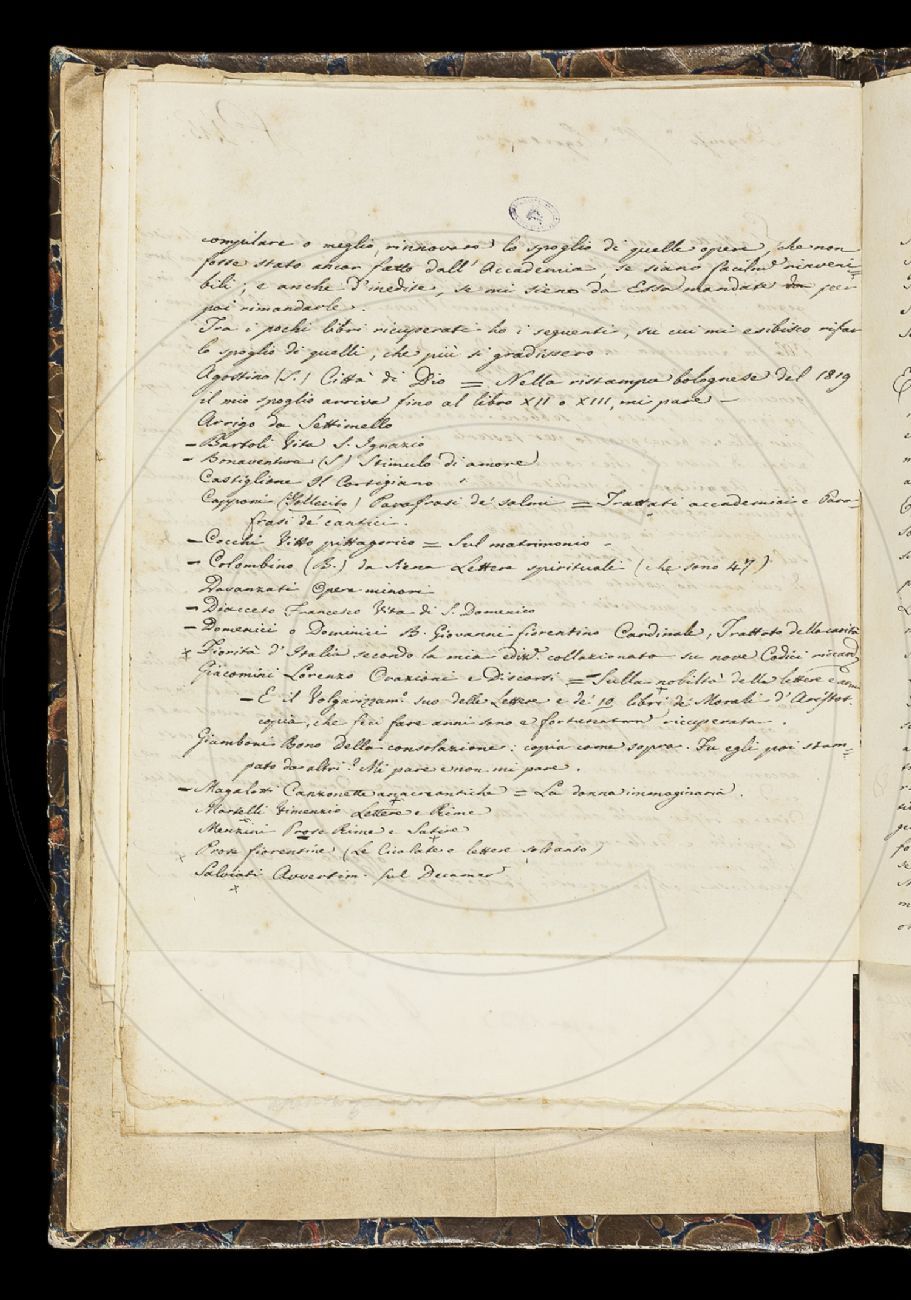 compilare o meglio rinnovare lo spoglio di quelle opere, che non
fosse stato ancor fatto dall'Accademia, se siano facilm.e rinveni=
bili, e anche d'inedite, se mi sieno da Essa mandate da per
poi rimandarle.
Tra i pochi libri ricuperati ho i seguenti, su cui mi esibisco rifar
lo spoglio di quelli, che più si gradissero
Agostino (S.) Città di Dio = Nella ristampa bolognese del 1819
il mio spoglio arriva fino al libro XII o XIII, mi pare -
Arrigo da Settimello
- Bartoli Vita S. Ignazio
- Bonaventura (S) Stimulo di amore
Castiglione Il Cortigiano
Capponi (Sollecito) Parafrasi de' salmi = Trattati accademici e Para-
frasi de' cantici.
- Cocchi Vitto pittagorico = Sul matrimonio -
- Colombino (B.) da Siena Lettere spirituali (che sono 47)
Davanzati Opere minori
- Diacceto Francesco Vita di S. Domenico
- Domenici o Dominici B. Giovanni fiorentino Cardinale, Trattato della carità
x Fiorità d'Italia secondo la mia ediz.e collazionata su nove Codici riccard
Giacomini Lorenzo Orazioni e Discorsi = - Sulla nobiltà delle lettere e armi
- E il Volgarizzam.o suo delle Lettere e de' 10 libri de' Morali d'Aristot.
copia, che feci fare anni sono e fortunatam.e ricuperata.
Giamboni Bono Della consolazione: copia come sopra. Fu egli poi stam=
pato da altri? Mi pare e non mi pare.
- Magalotti Canzonette anacreontiche = La donna immaginaria.
Martelli Vincenzio Lettere e Rime
Menzini Prose Rime e Satire
x Prose fiorentine (Le Cicalate e lettere soltanto)
Salviati Avvertim. sul Decamer.e
x